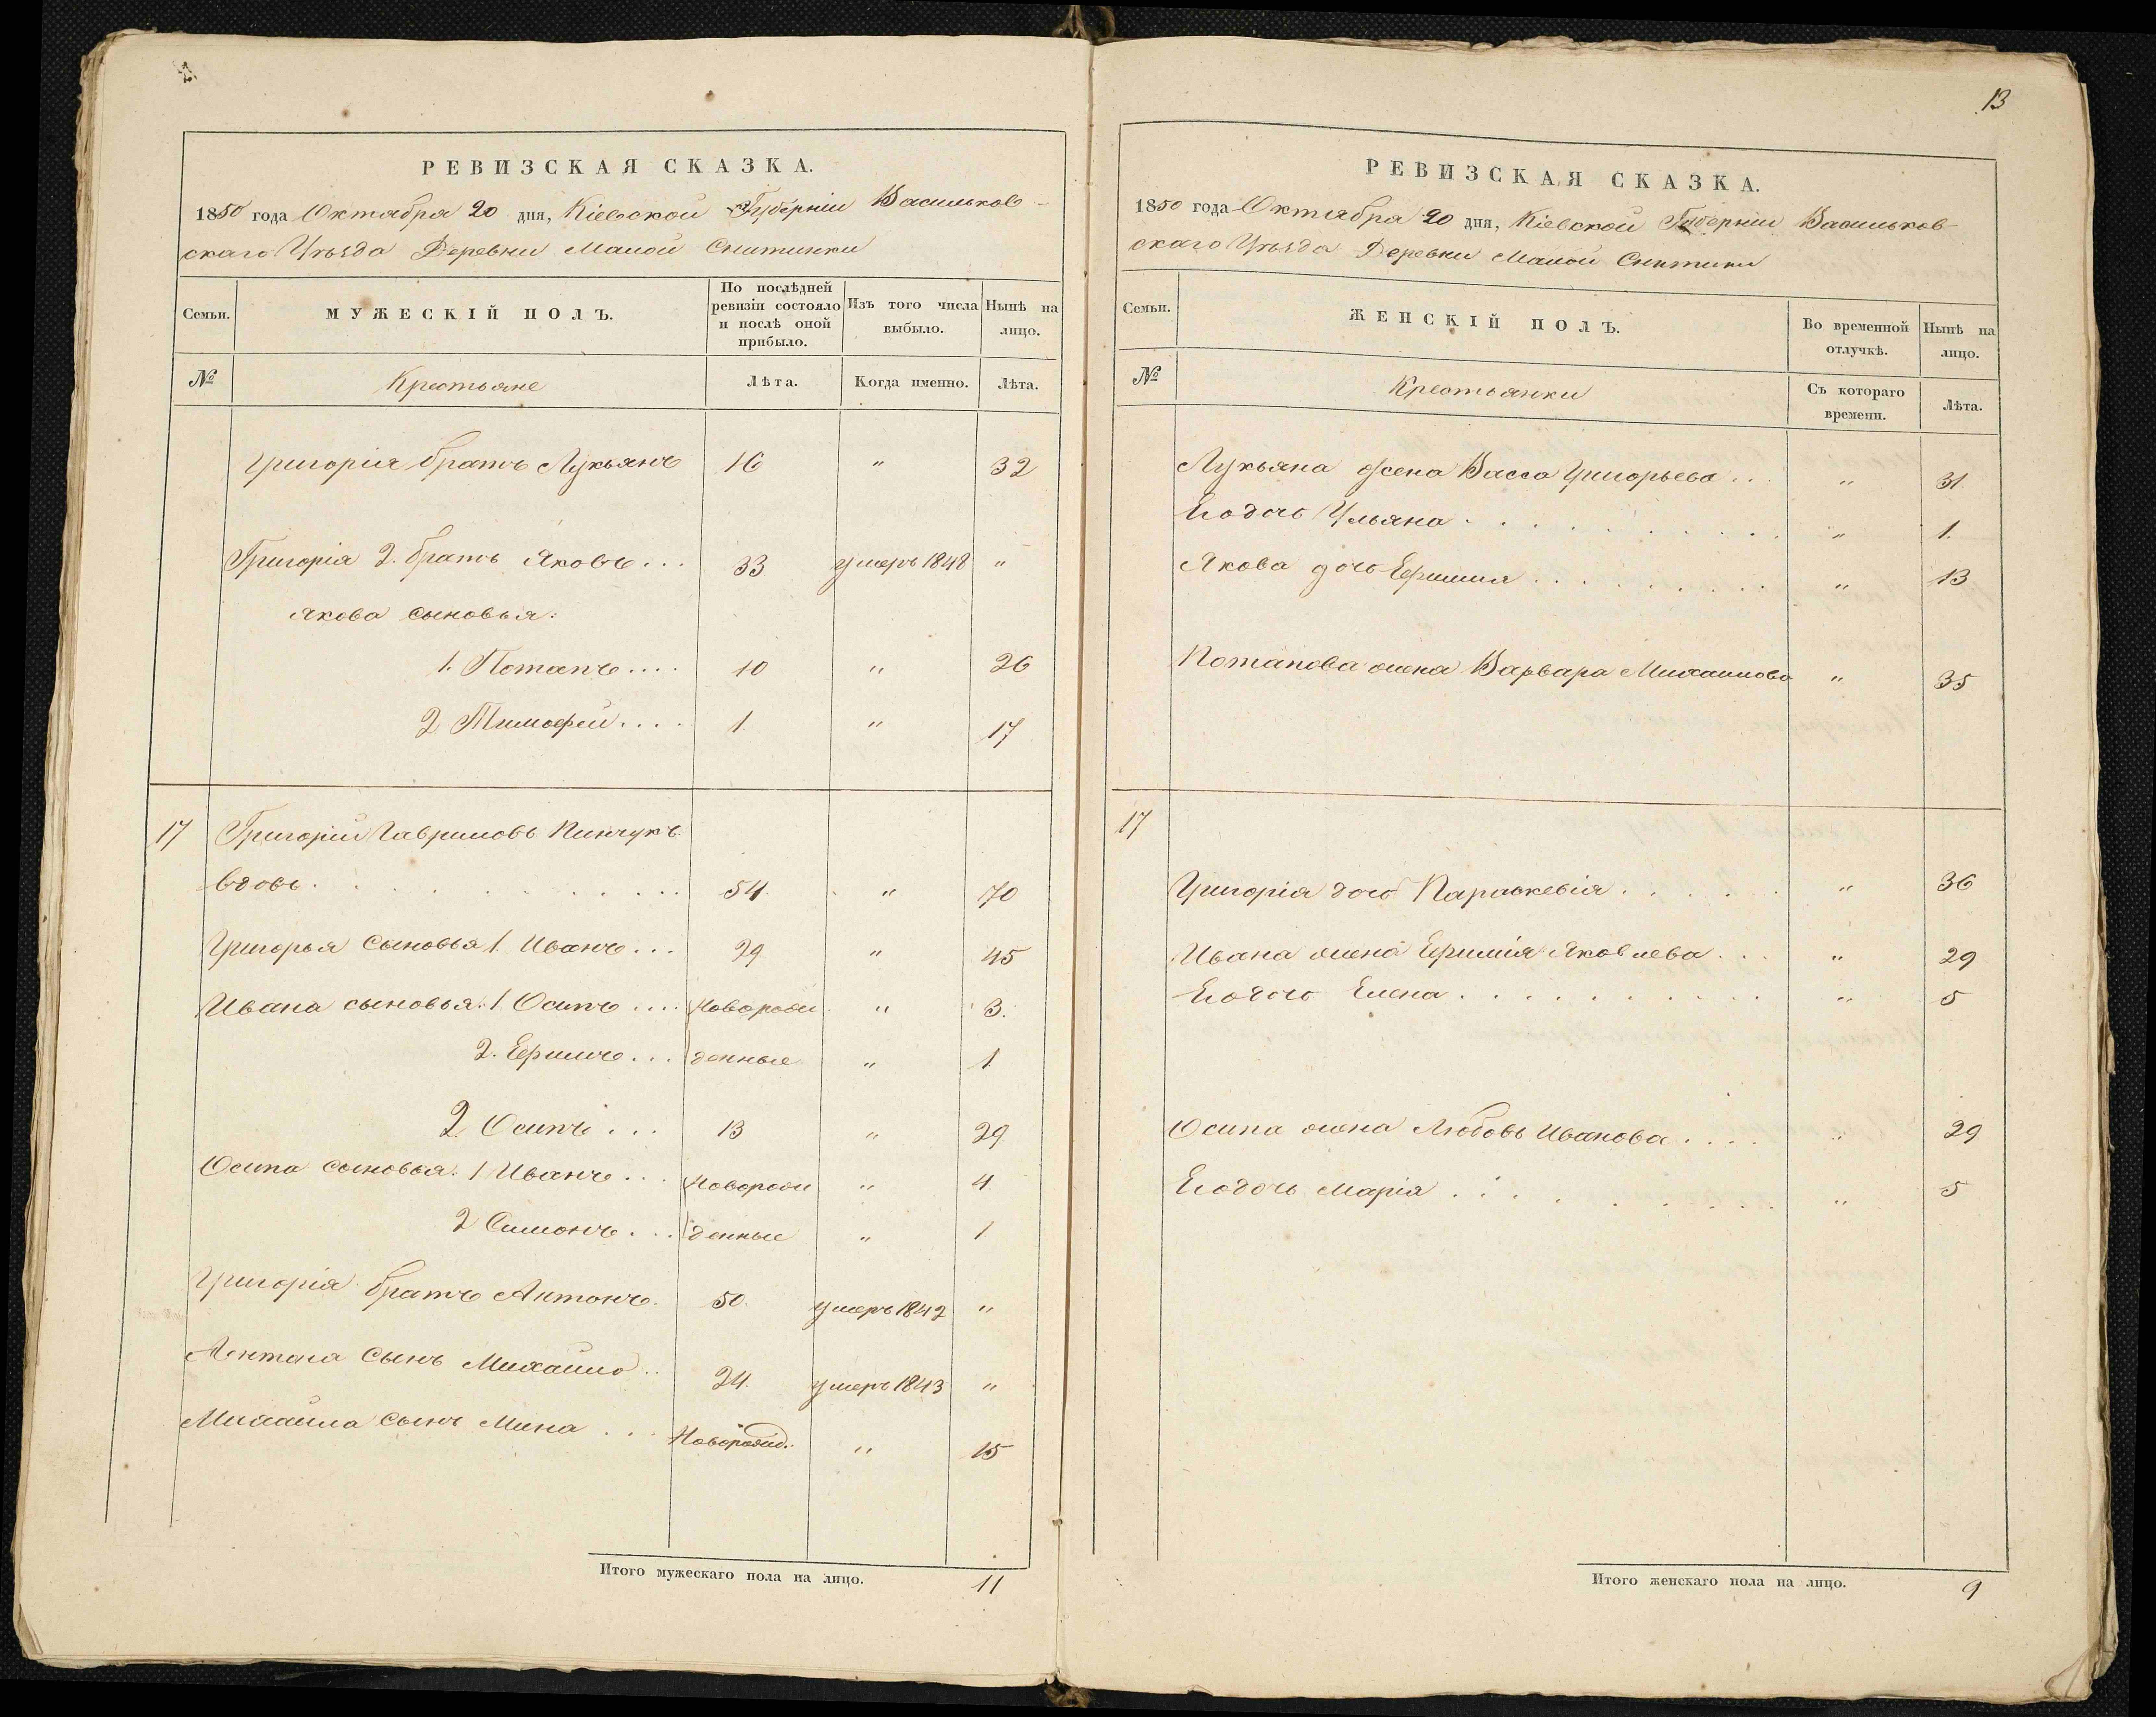 РЕВИЗСКАЯ СКАЗКА.
1850 года Октября 20 дня, Кіевской Губерніи Васильков-
скаго Уѣзда Деревни Малой Снитинки
Семьи.
МУЖЕСКІЙ ПОЛЪ.
По послѣдней ревизіи состояло и послѣ оной прибыло.
Изъ того числа выбыло.
Нынѣ на лицо.
№
Крестьяне
Лѣта.
Когда именно.
Лѣта.
Григорія братъ Лукьянъ 16 " 32
Григорія 2. братъ Яковъ... 33 умеръ 1848 "
Якова сыновья:
1. Потапъ.... 10 " 26
2 Тимофей.... 1. " 17
17 Григорій Гавриловъ Пинчукъ
вдовъ. 54. " 70
Григорья сыновья 1. Иванъ... 29 " 45
Ивана сыновья: 1 Осипъ.... Новорож " 3.
2. Ефимъ... денные " 1.
2. Осипъ... 13 " 29
Осипа сыновья: 1 Иванъ... Новорож " 4.
2 Симонъ... денные " 1
Григорія братъ Антонъ. 50. умеръ 1842 "
Антона сынъ Михайло.. 24. умеръ 1843 "
Михайла сынъ Мина... Новорожд. " 15
Итого мужескаго пола на лицо. 11
13
РЕВИЗСКАЯ СКАЗКА.
1850 года Октября 20 дня, Кіевской Губерніи Васильков-
скаго Уѣзда Деревни Малой Снитинки
Семьи.
ЖЕНСКІЙ ПОЛЪ.
Во временной отлучкѣ.
Нынѣ на лицо.
№
Крестьянки
Съ котораго времени.
Лѣта.
Лукьяна жена Васса Григорьева... " 31.
Ея дочь Ульяна. " 1.
Якова дочь Ефимия. " 13
Потапова жена Варвара Михаилова " 35
17
Григорія дочь Параскевія. " 36
Ивана жена Ефимія Яковлева... " 29
Ея дочь Елена. " 5
Осипа жена Любовь Иванова.... " 29
Ея дочь Марія. " 5
Итого женскаго пола на лицо. 9